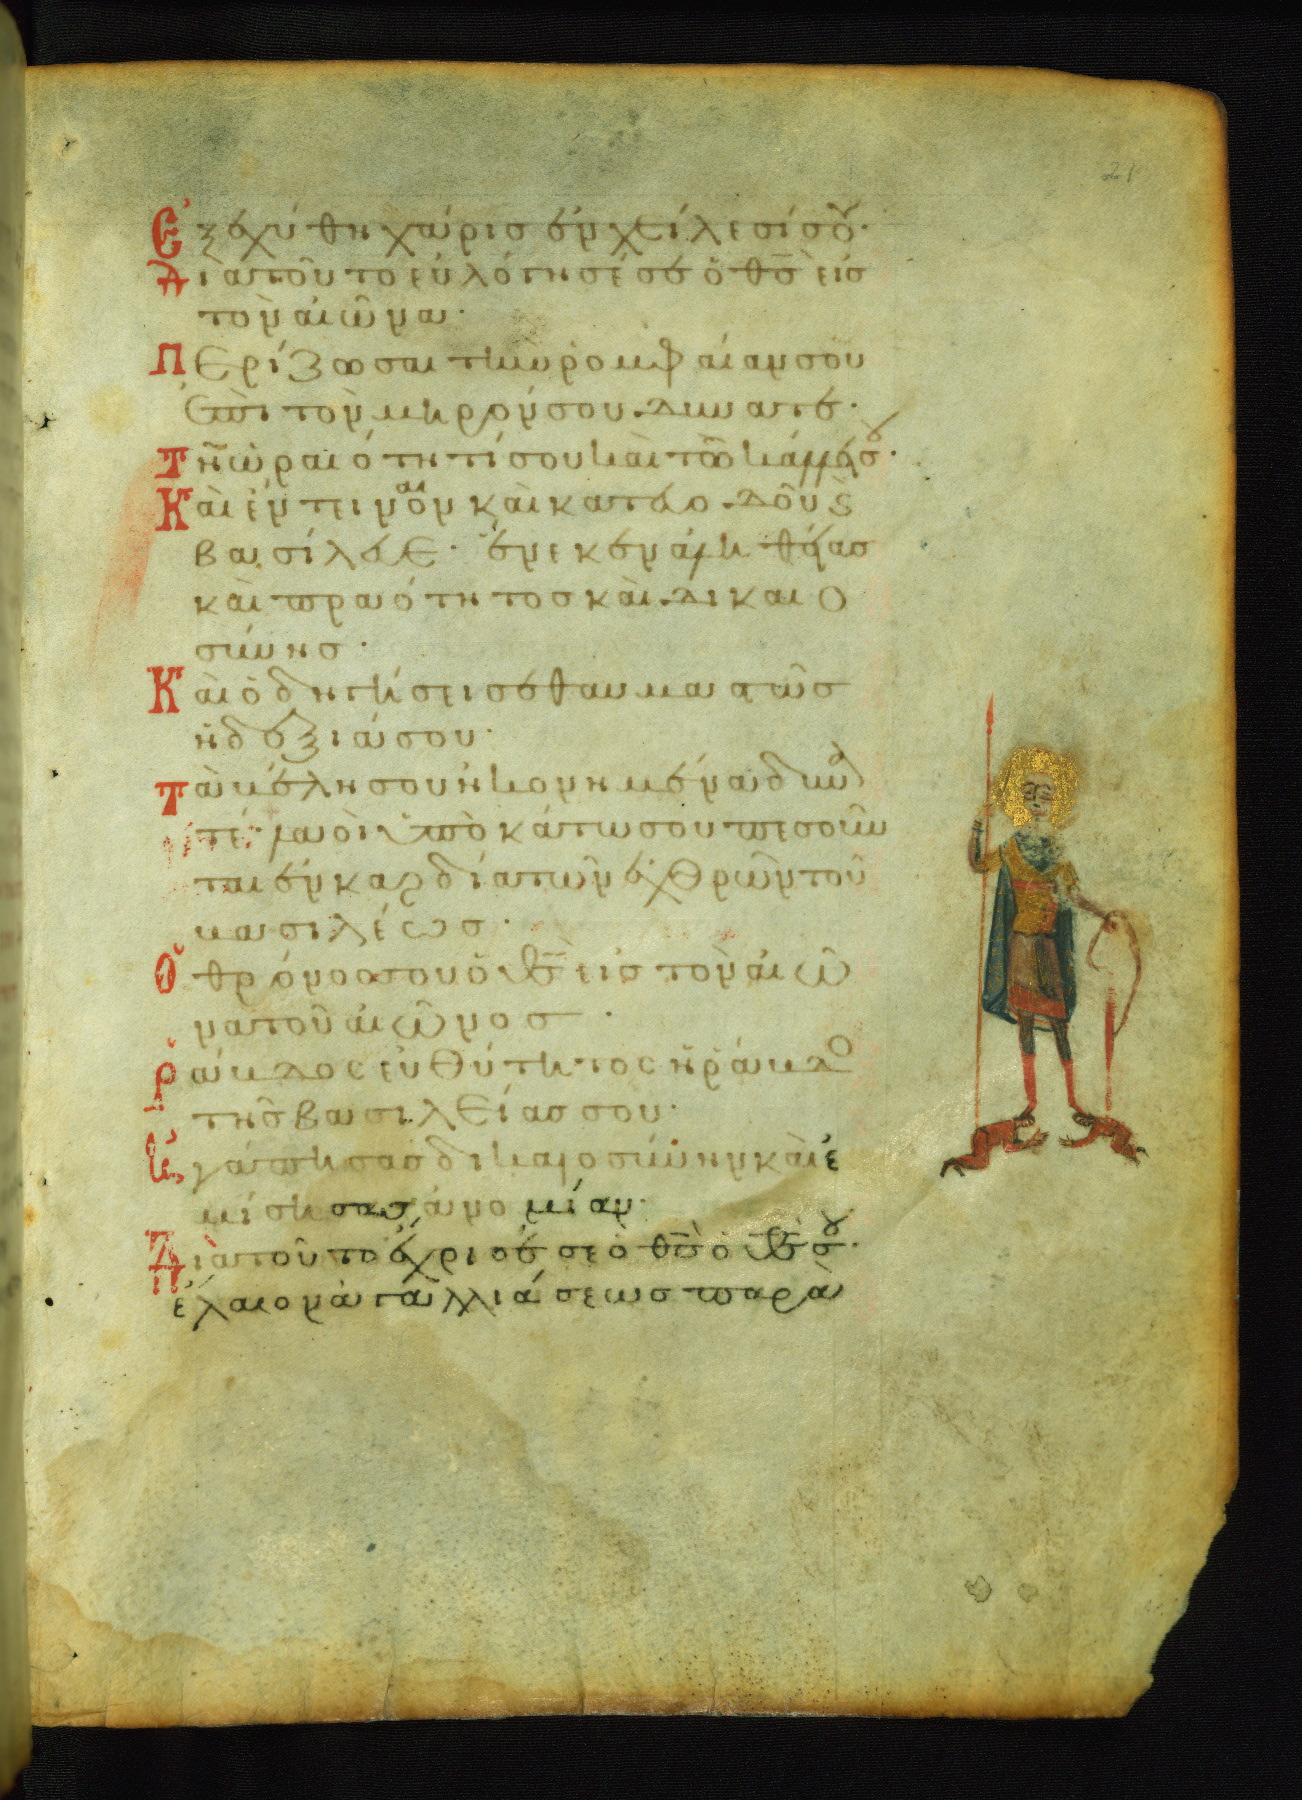 21
Ἐξεχύθη χάρις ἐν χείλεσί σου·
Διατοῦτο εὐλόγησέ σε ὁ θς εἰς
τὸν αἰῶνα·
Περίζωσαι τὴν ῥομφαίαν σου
ἐπὶ τὸν μηρόν σου δυνατέ·
Τῆ ὡραιότητί σου καὶ τῶ κάλλει σου·
Καὶ ἔντεινον καὶ κατευοδοῦ καὶ
βασίλευε· ἕνεκεν ἀληθείας
καὶ πραότητος καὶ δικαιο
σύνης·
Καὶ ὁδηγήσει σε θαυμαστῶς
ἡ δεξιά σου·
Τὰ βέλη σου ἠκονημένα δυνα
τέ· λαοὶ ὑποκάτω σου πεσοῦν
ται ἐν καρδία τῶν ἐχθρῶν τοῦ
βασιλέως·
Ὁ θρόνος σου ὁ θς εἰς τὸν αἰῶ
να τοῦ αἰῶνος·
Ῥάβδος εὐθύτητος ἡ ῥάβδο
τῆς βασιλείας σου·
Ἠγάπησας δικαιοσύνην καὶ ἐ
μίσησας ἀνομίαν·
Διὰ τοῦτο ἔχρισέ σε ὁ θς ὁ θς σου·
ἔλαιον ἀγαλλιάσεως παρὰ